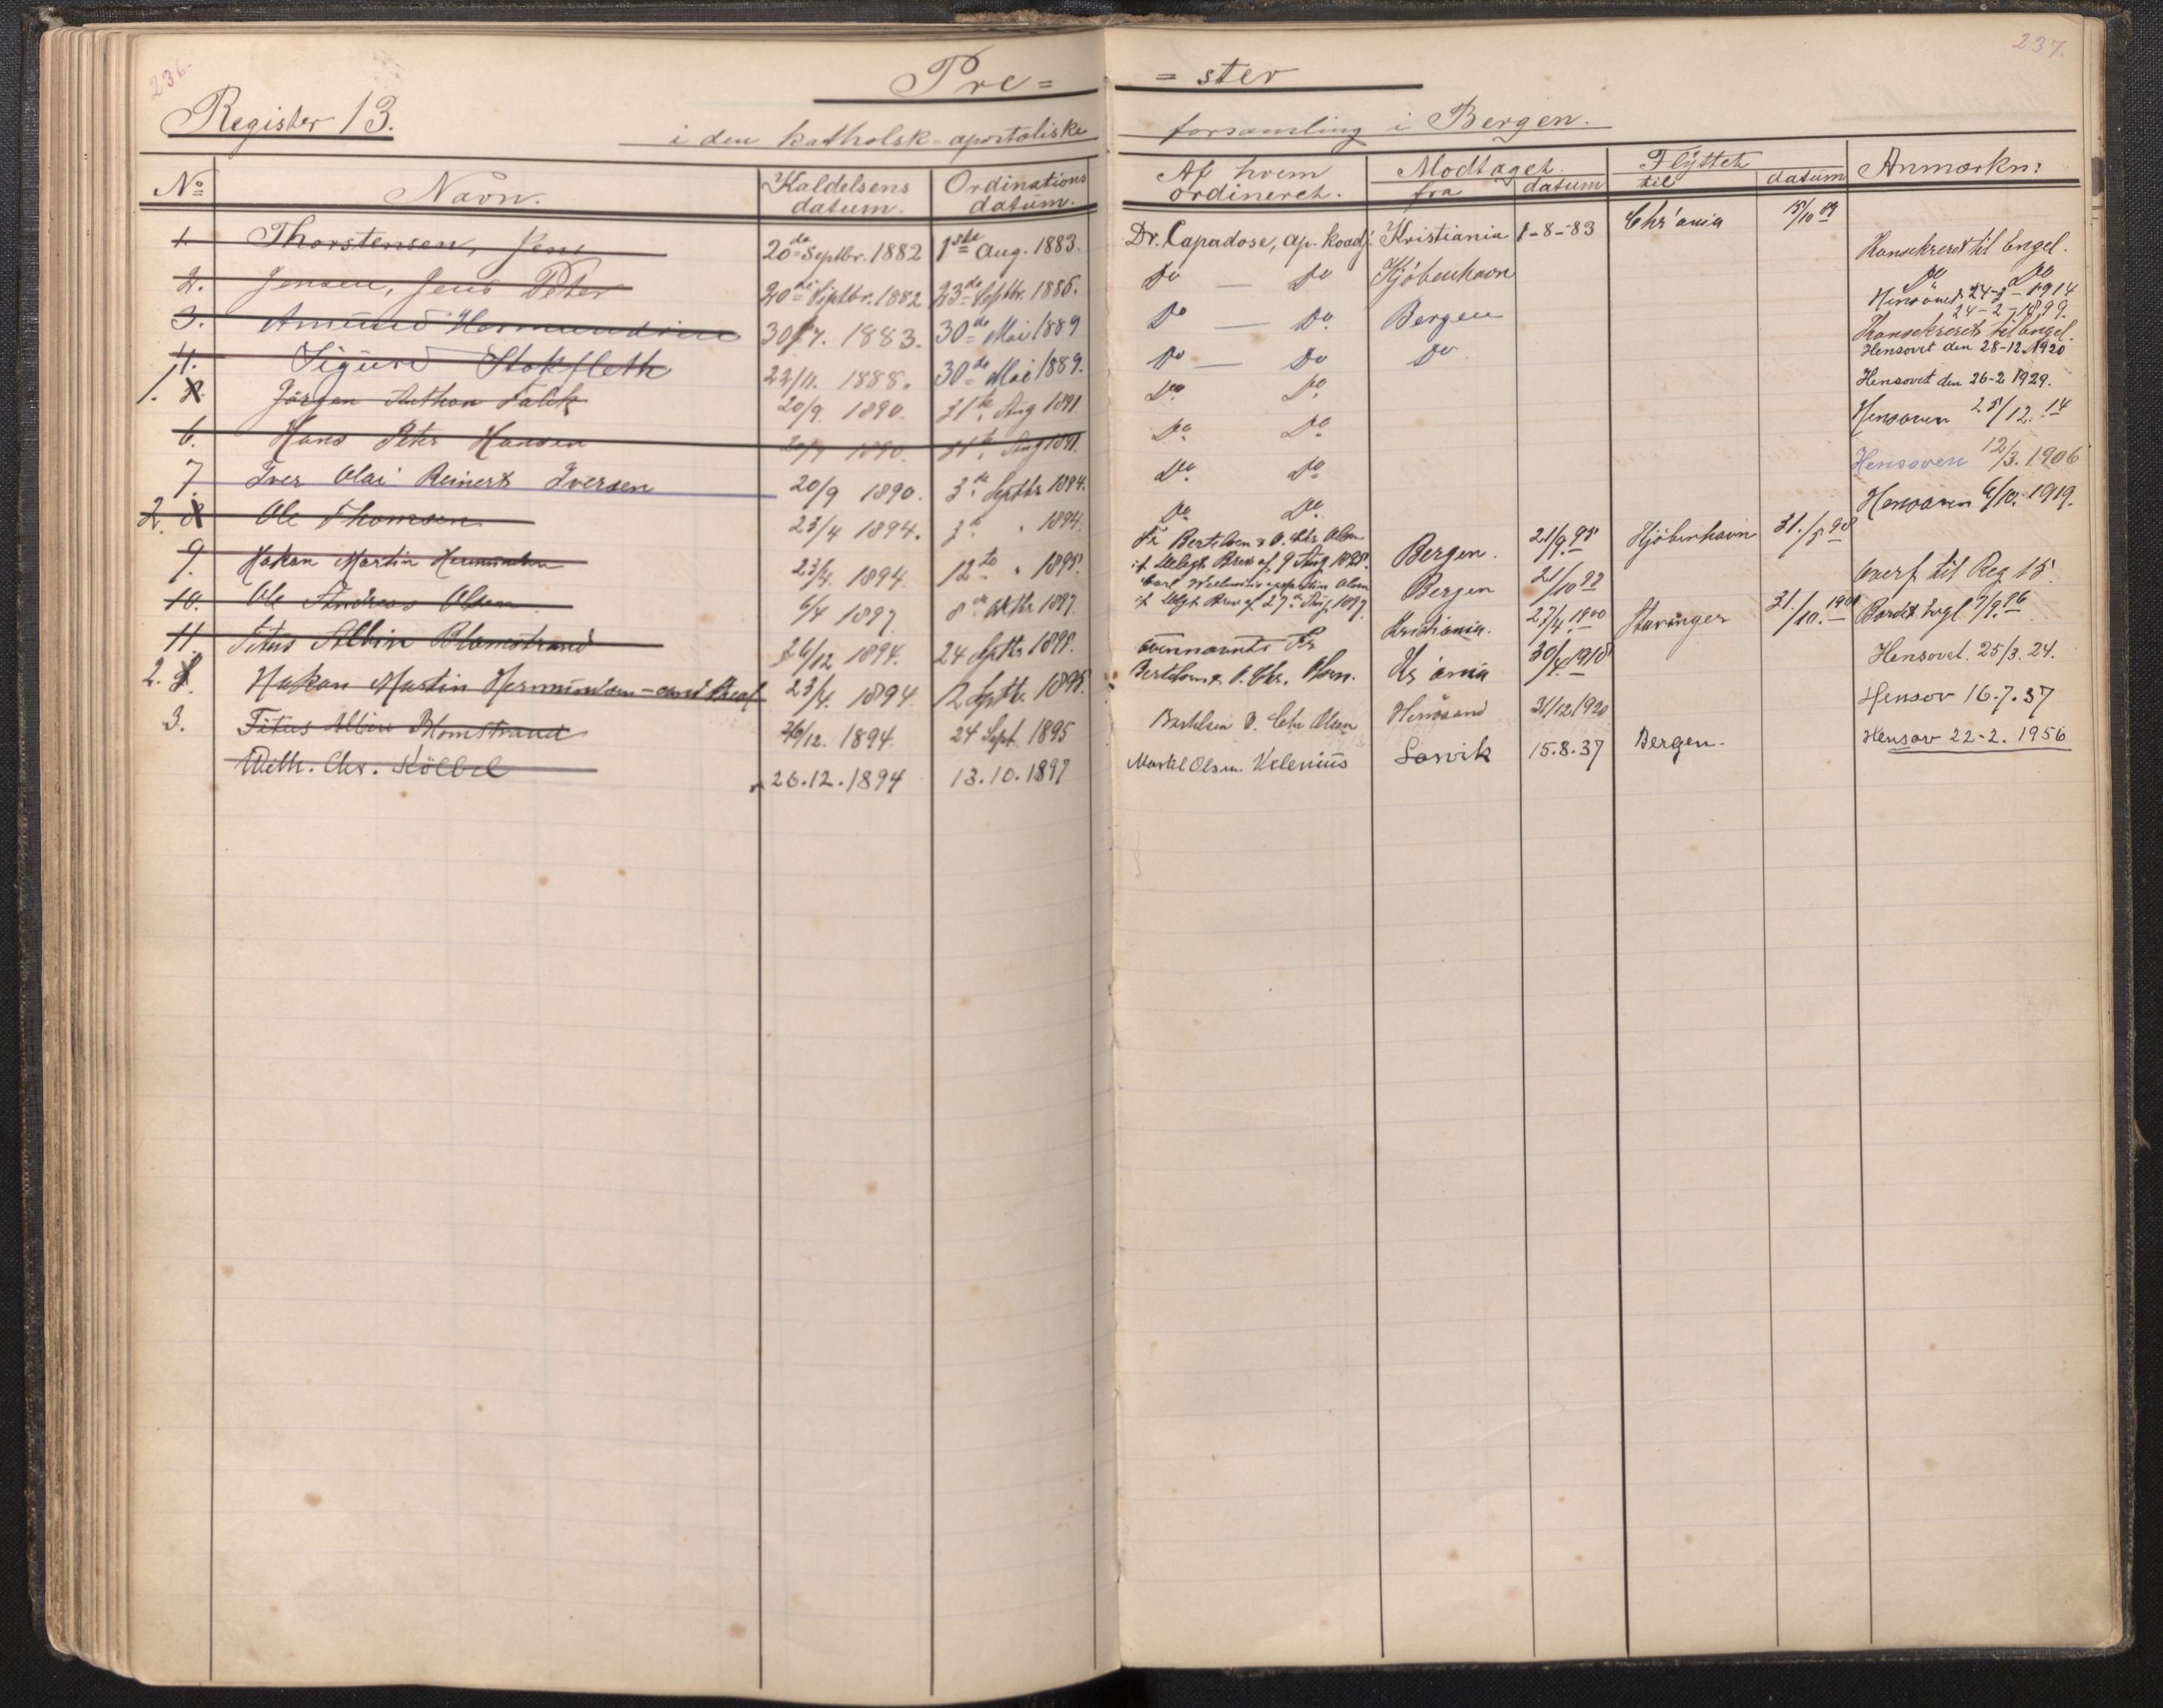 236.
Pre=
Register 13.
i den katholsk-apostoliske
No
Navn.
Kaldelsens datum.
Ordinations datum.
1. Thorstensen, Jens 20de Septbr. 1882 1ste Aug. 1883.
2. Jensen, Jens Peter 20de Septbr. 1882 23de Septbr. 1886.
3. Amund Hermundsen 30/7. 1883. 30de Mai 1889
4. Sigurd Stokfleth 22/11. 1888. 30de Mai 1889.
1. Jörgen Anthon Falck 20/9 1890. 31te Aug 1891
6. Hans Peter Hansen 20/9 1890. 31te Aug 1891.
7. Iver Olai Reinert Iversen 20/9 1890. 3de Septbr 1894.
2. 8 Ole Thomsen 23/4 1894. 3de " 1894.
9. Hakon Martin Hermundsen 23/4. 1894. 12te " 1895.
10. Ole Andreas Olsen 6/4 1897 8de Oktbr 1897.
11. Titus Albin Blomstrand 26/12 1894. 24 Septbr 1895.
2. Hakon Martin Hermundsen - 23/4. 1894. 12 Septbr. 1895.
3. Titus Albin Blomstrand 26/12. 1894. 24 Sept 1895
Wilh. Chr. Kölbel 26.12.1894 13.10.1897
237.
=ster
forsamling i Bergen.
Af hvem ordineret.
Modtaget
fra
datum
Flÿttet
til
datum
Anmærkn:
Dr. Capadose, ap. Koadj. Kristiania 1-8-83 Chr'ania 15/10 89
Konsekreret til Engel.
Do — Do Kjöbenhavn Do Do
Hensovet 24-2-1914
24-2-1899.
Do — Do. Bergen Konsekreret til Engel.
Do — Do Do. Hensovet den 28-12-1920
Do. Do. Hensovet den 26-2 1929.
Do. Do. Hensoven 25/12.14
Do. Do. Hensoven 12/3.1906
Do. Do. Hensoven 6/10. 1919.
Bertelsen & O. Chr Olsen
if. Delegt. Brev af 9 Aug 1895. Bergen. 21/9.95 Kjöbenhavn 31./5 98
Carl Welenius Olsen
if. Delgt Brev af 27de Aug 1897 Bergen 21/10 97 Overf til Reg 15.
ovennævnte Kristiania. 27/4.1900 Stavanger 31./10.
Bertelsen & O. Chr. Olsen. Kr'ania 30/4.1918 Hensovet. 25/3.24.
Bertelsen O. Chr Olsen Hernösand 31/12.1920 Hensov 16.7.37
Martel Olsen. Velenius Larvik 15.8.37 Bergen. Hensov 22-2.1956